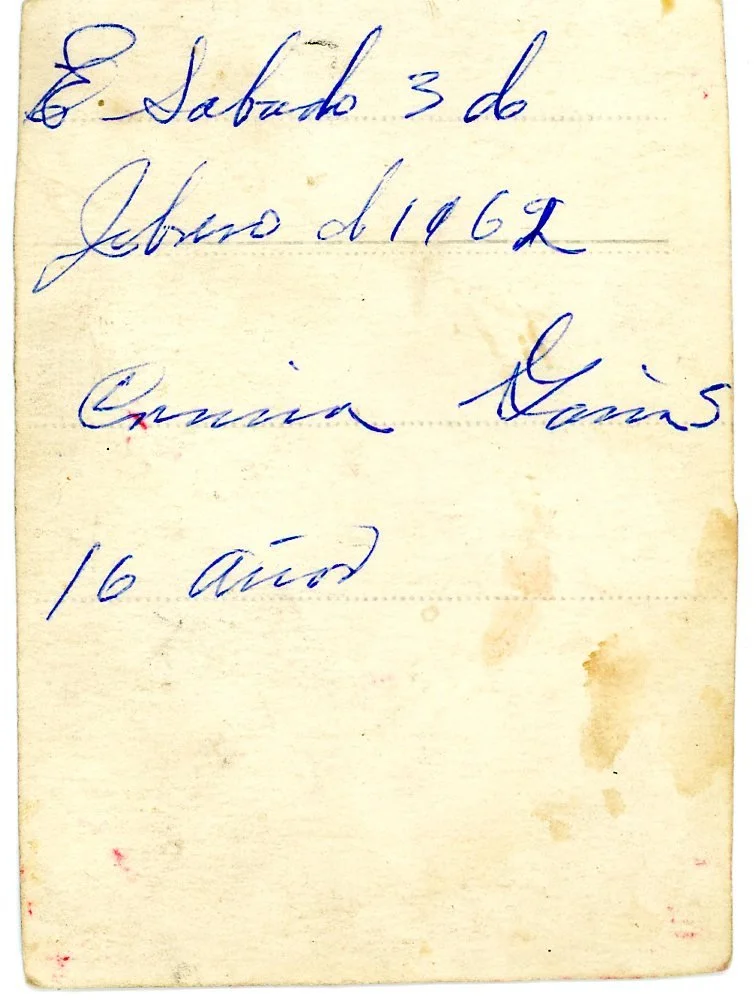 E Sabado 3 de
febrero de 1962
16 años